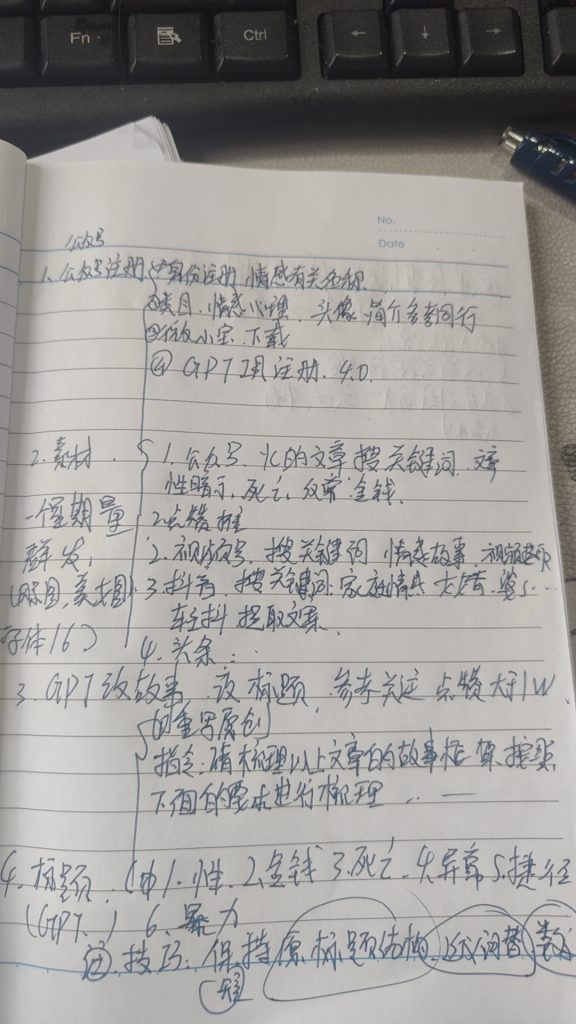 Fn
Ctrl
←
↓
→
No.
Date
公众号
1. 公众号注册 ①身份注册 情感有关名称
②类目. 情感心理. 头像 简介参考同行
下载
④ GPT 4.0.
2. 素材 1. 公众号. 的文章 搜关键词.
性暗示, 死亡, 金钱.
一个星期 量 2 点赞 推
群发, 2. 视频号, 搜关键词 情感故事.
3. 抖音, 搜关键词. 家庭情
字体16) 轻抖 提取文案.
4. 头条 . .
3. GPT改故事 改标题, 参考 关注 点赞大于1W
重写原创
指令: 请梳理以上文章的故事框架, 按照
下面的要求进行梳理 . . —
4. 标题. 1. 性. 2. 金钱 3. 死亡. 4. 异常 5. 捷径
(GPT.) 6. 暴力
技巧: 保持原标题结构,